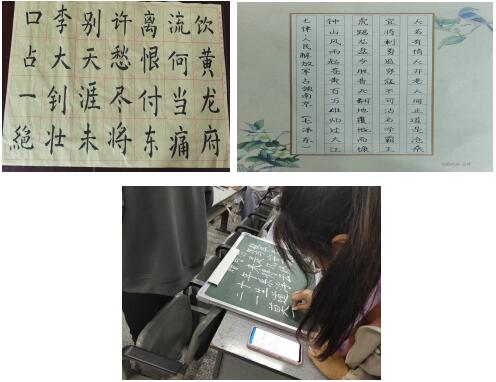 口占一絕
李大钊壮
别天涯未
许愁尽将
离恨付东
流何当痛
饮黄龙府
七律人民解放军占领南京（毛泽东）
钟山风雨起苍黄百万雄师过大江
虎踞龙盘今胜昔天翻地覆慨而慷
宜将剩勇追穷寇不可沽名学霸王
天若有情天亦老人间正道是沧桑